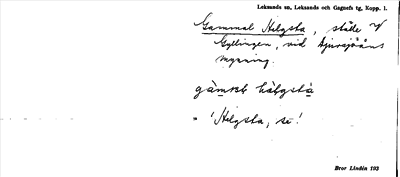 Leksands sn, Leksands och Gagnefs tg, Kopp. l.
Gammal Helgsta, ställe v/
Gyllingen, vid Djursjöåns
mynning.
'Helgsta, se!
Bror Lindén 193